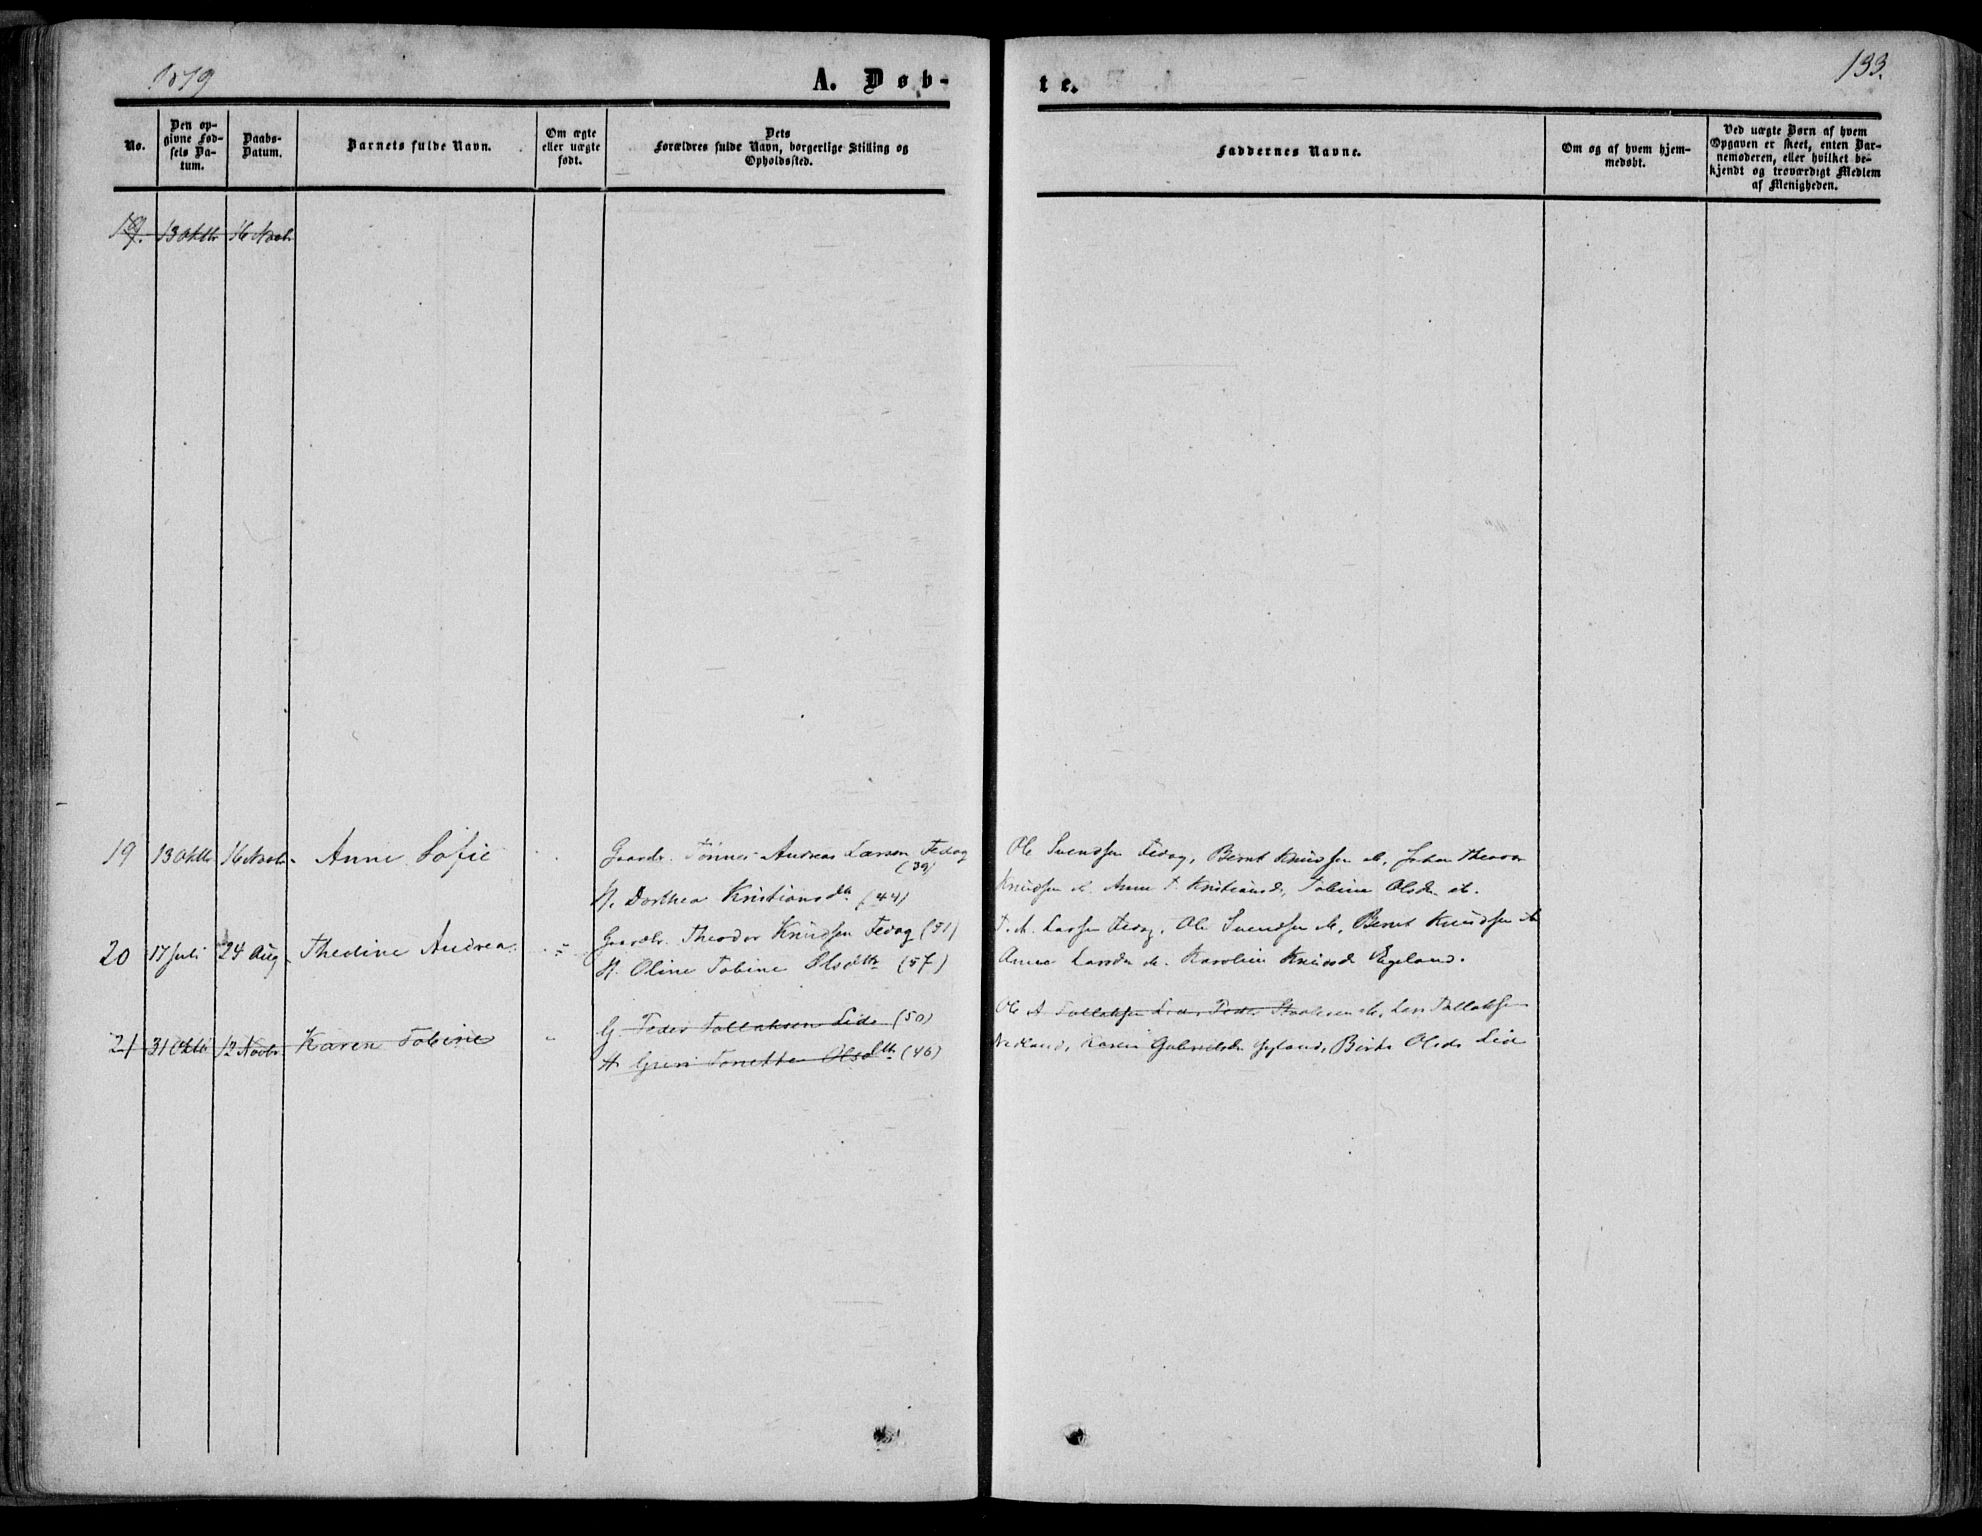 1879
A. Døb-
te.
133.
No.
Den op-
givne Fød-
sels Da-
tum.
Daabs-
Datum.
Barnets fulde Navn.
Om ægte
eller uægte
født.
Dets
Forældres fulde Navn, borgerlige Stilling og
Opholdssted.
Faddernes Navne.
Om og af hvem hjem-
medøbt.
Ved uægte Børn af hvem
Opgaven er skeet, enten Bar-
nemoderen, eller hvilket be-
kjendt og troværdigt Medlem
af Menigheden.
19. 13 Oktbr 16 Novbr
19 13 Oktbr 16 Novbr. Anne Sofie
Gaardbr. Tønnes Andreas Larsen Fedog
(39)
H. Dorthea Kristiansdtr (44)
Ole Svendsen Fedog, Bernt Knudsen ib, Johan Theodor
Knudsen ib. Anne T. Kristiansd, Tobine Olsdr ib.
20 17 Juli 24 Aug. Thedine Andrea
Gaardbr. Theodor Knudsen Fedog (51)
H. Oline Tobine Olsdttr (57)
T. A. Larsen Fedog, Ole Svendsen ib, Bernt Knudsen ib
Anna Larsdr ib. Karoline Knudsd Egeland.
21 31 Oktbr 12 Novbr. Karen Tobine
G Peder Tollaksen Lide (50)
H Guri Tonette Olsdttr (46)
Ole A Tollaksen Lide, Peder ib, Lars Tollaksen
Nedland, Karen Gabrielsdr Gyland, Berte Olsdr Lide